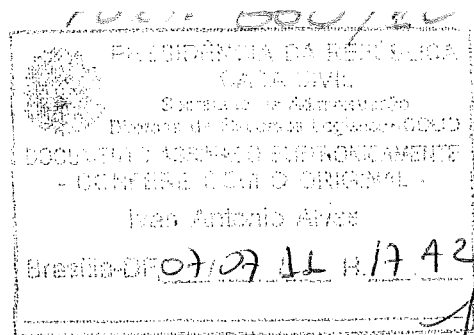 PRESIDÊNCIA DA REPÚBLICA
CASA CIVIL
Secretaria de Administração
Diretoria de Recursos Logísticos
DOCUMENTO ASSINADO ELETRONICAMENTE
- CONFERE COM O ORIGINAL -
Ivan Antonio Alves
Brasília-DF 07/07/11 H. 17 42